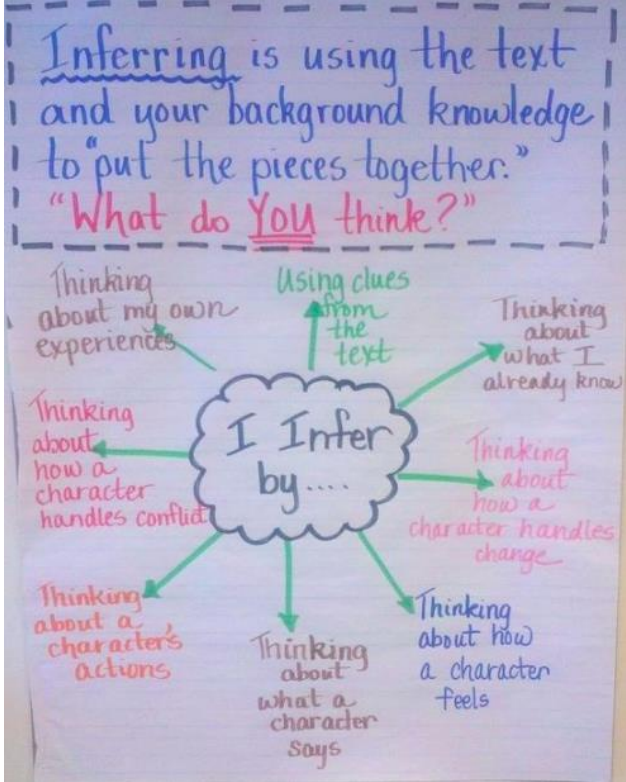 Inferring is using the text
and your background knowledge
to "put the pieces together."
"What do YOU think?"
Thinking
about my own
experiences
Using clues
from
the
text
Thinking
about
what I
already know
I Infer
by....
Thinking
about
how a
character
handles conflict
Thinking
about
how a
character handles
change
Thinking
about a
character's
actions
Thinking
about
what a
character
says
Thinking
about how
a character
feels